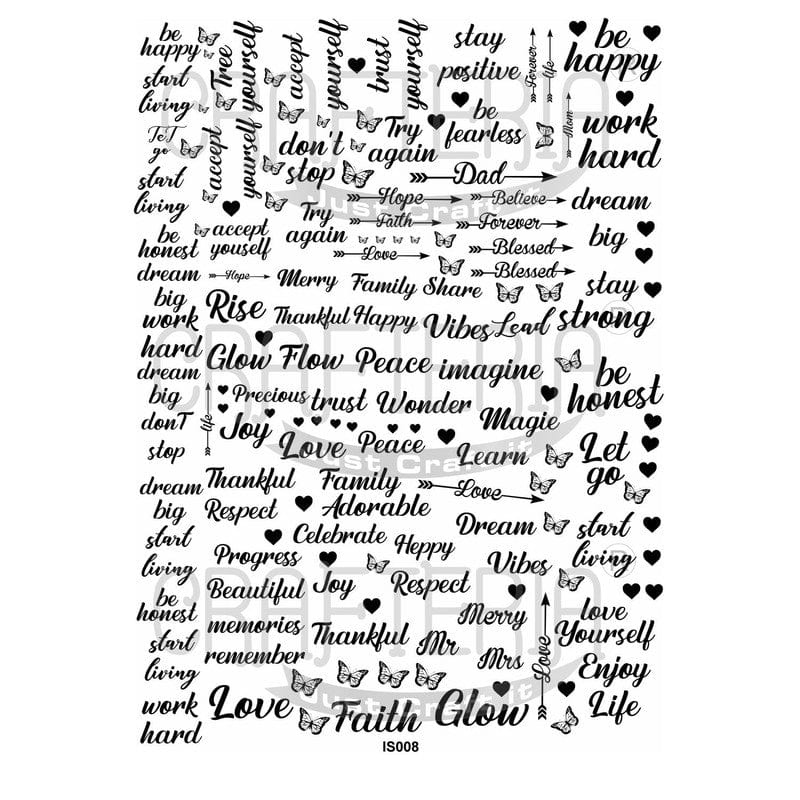 be
happy
Tree
yourself
accept
yourself
trust
yourself
stay
positive
Forever
life
be
happy
start
living
be
fearless
Mom
work
hard
TcT
go
accept
yourself
don't
stop
Try
again
Dad
start
living
Hope
Believe
dream
Try
again
Faith
Forever
accept
youself
be
honest
Love
Blessed
big
Blessed
dream
Hope
Merry
Family
Share
stay
strong
big
work
hard
Rise
Thankful
Happy
Vibes
Lead
Glow
Flow
Peace
imagine
be
honest
dream
big
donT
stop
life
Precious
trust
Wonder
Magie
Joy
Love
Peace
Learn
Let
go
dream
big
Thankful
Family
Love
Respect
Adorable
Dream
start
living
start
living
Celebrate
Heppy
Progress
Vibes
Beautiful
memories
remember
Joy
Respect
be
honest
Merry
love
Yourself
start
living
Thankful
Mr
Mrs
Love
Enjoy
Life
work
hard
Love
Faith
Glow
IS008
CRAFTERIA
Just Craft it
CRAFTERIA
Just Craft it
CRAFTERIA
Just Craft it